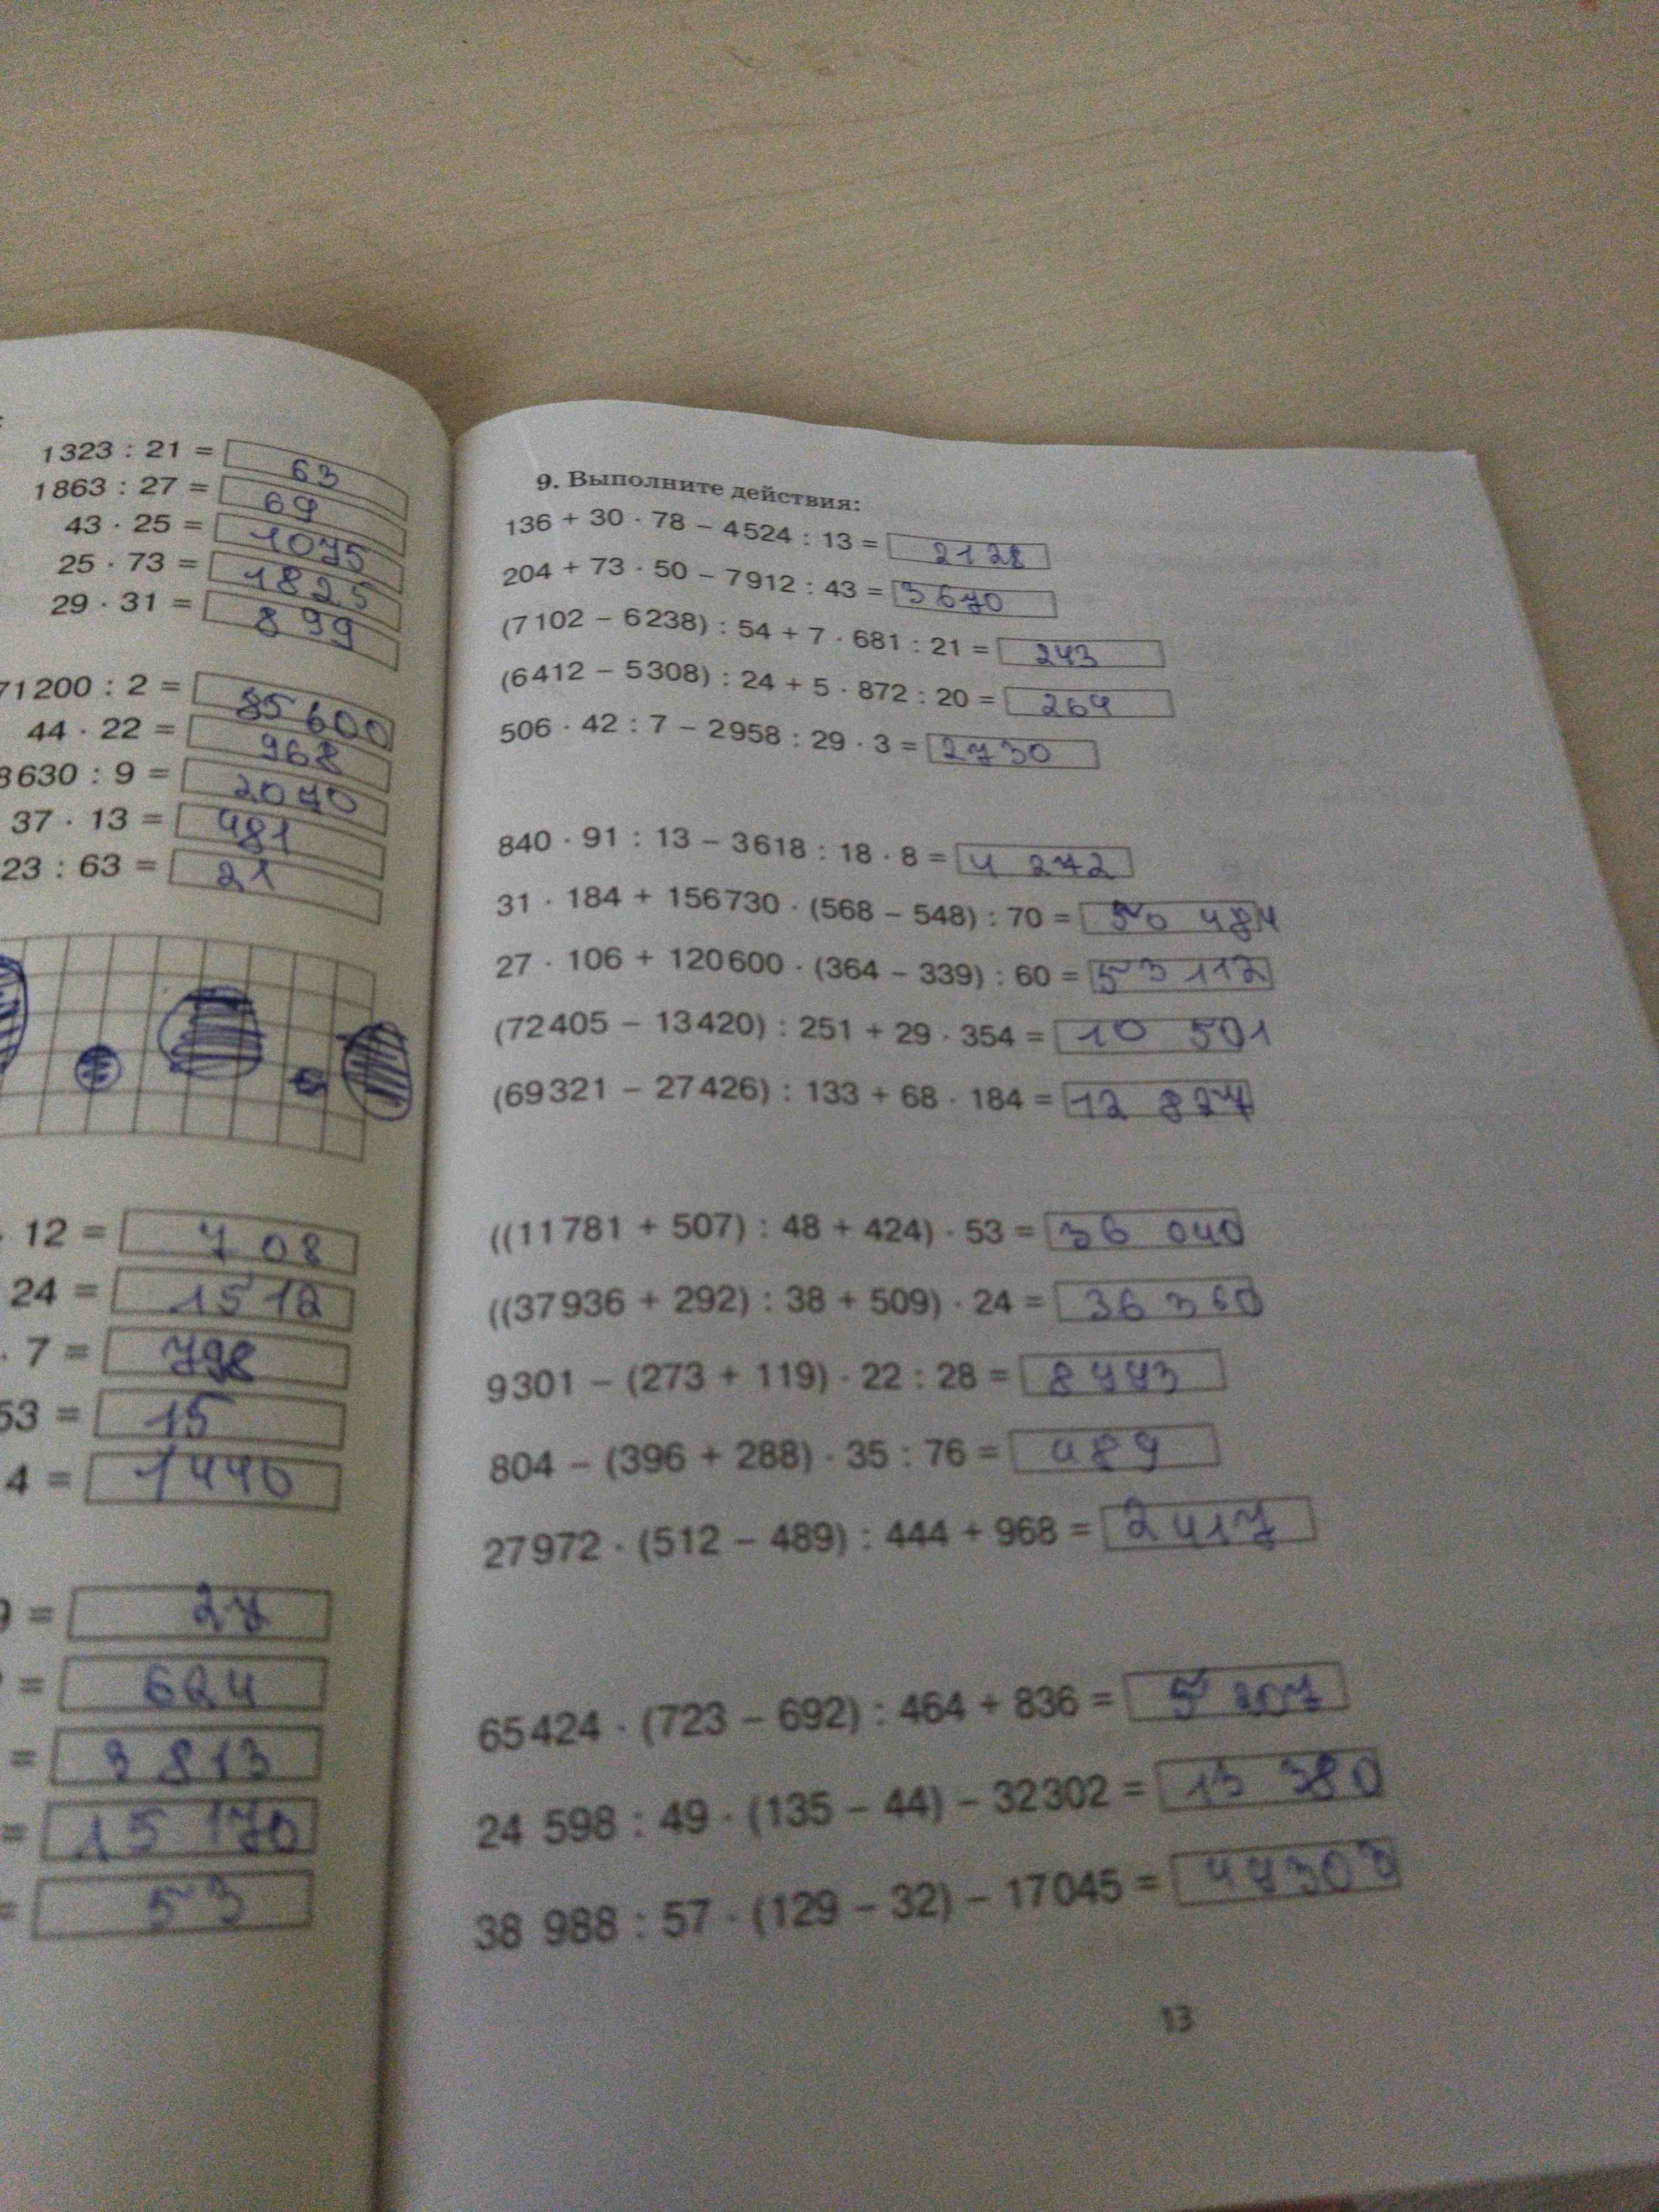 1323 : 21 = 63
1863 : 27 = 69
43 · 25 = 1075
25 · 73 = 1825
29 · 31 = 899
71200 : 2 = 85600
44 · 22 = 968
8630 : 9 = 2070
37 · 13 = 481
23 : 63 = 21
· 12 = 708
24 = 1512
· 7 = 798
53 = 15
4 = 1440
= 27
= 624
= 3813
= 15 170
= 53
9. Выполните действия:
136 + 30 · 78 − 4524 : 13 = 2128
204 + 73 · 50 − 7912 : 43 = 3670
(7102 − 6238) : 54 + 7 · 681 : 21 = 243
(6412 − 5308) : 24 + 5 · 872 : 20 = 264
506 · 42 : 7 − 2958 : 29 · 3 = 2730
840 · 91 : 13 − 3618 : 18 · 8 = 4 272
31 · 184 + 156730 · (568 − 548) : 70 = 50 484
27 · 106 + 120600 · (364 − 339) : 60 = 53 112
(72405 − 13420) : 251 + 29 · 354 = 10 501
(69321 − 27426) : 133 + 68 · 184 = 12 827
((11781 + 507) : 48 + 424) · 53 = 36 040
((37936 + 292) : 38 + 509) · 24 = 36 360
9301 − (273 + 119) · 22 : 28 = 8993
804 − (396 + 288) · 35 : 76 = 489
27972 · (512 − 489) : 444 + 968 = 2417
65424 · (723 − 692) : 464 + 836 = 5 207
24 598 : 49 · (135 − 44) − 32302 = 13 380
38 988 : 57 · (129 − 32) − 17045 =
13